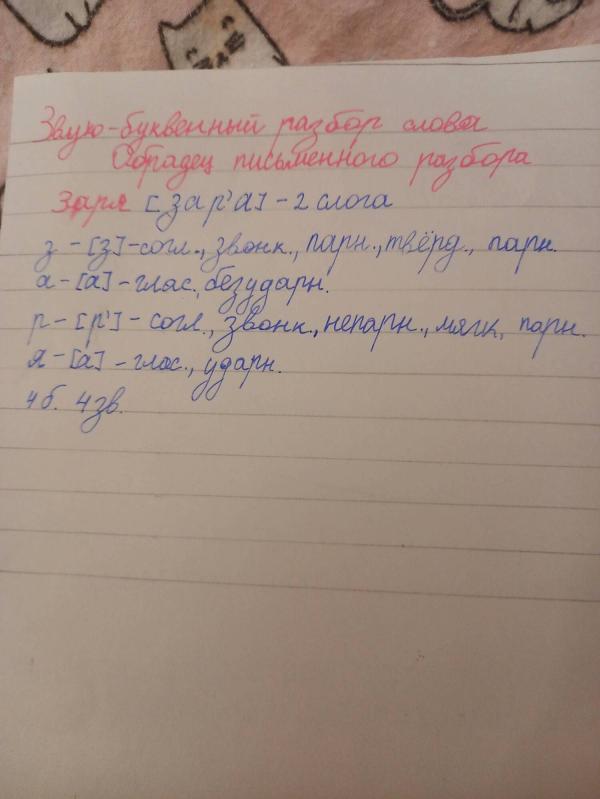 Звуко-буквенный разбор слова
Образец письменного разбора
Заря [зар'а] - 2 слога
з - [з] - согл., звонк., парн., твёрд., парн.
а - [а] - глас., безударн.
р - [р'] - согл., звонк., непарн., мягк, парн.
я - [а] - глас., ударн.
4 б. 4 зв.